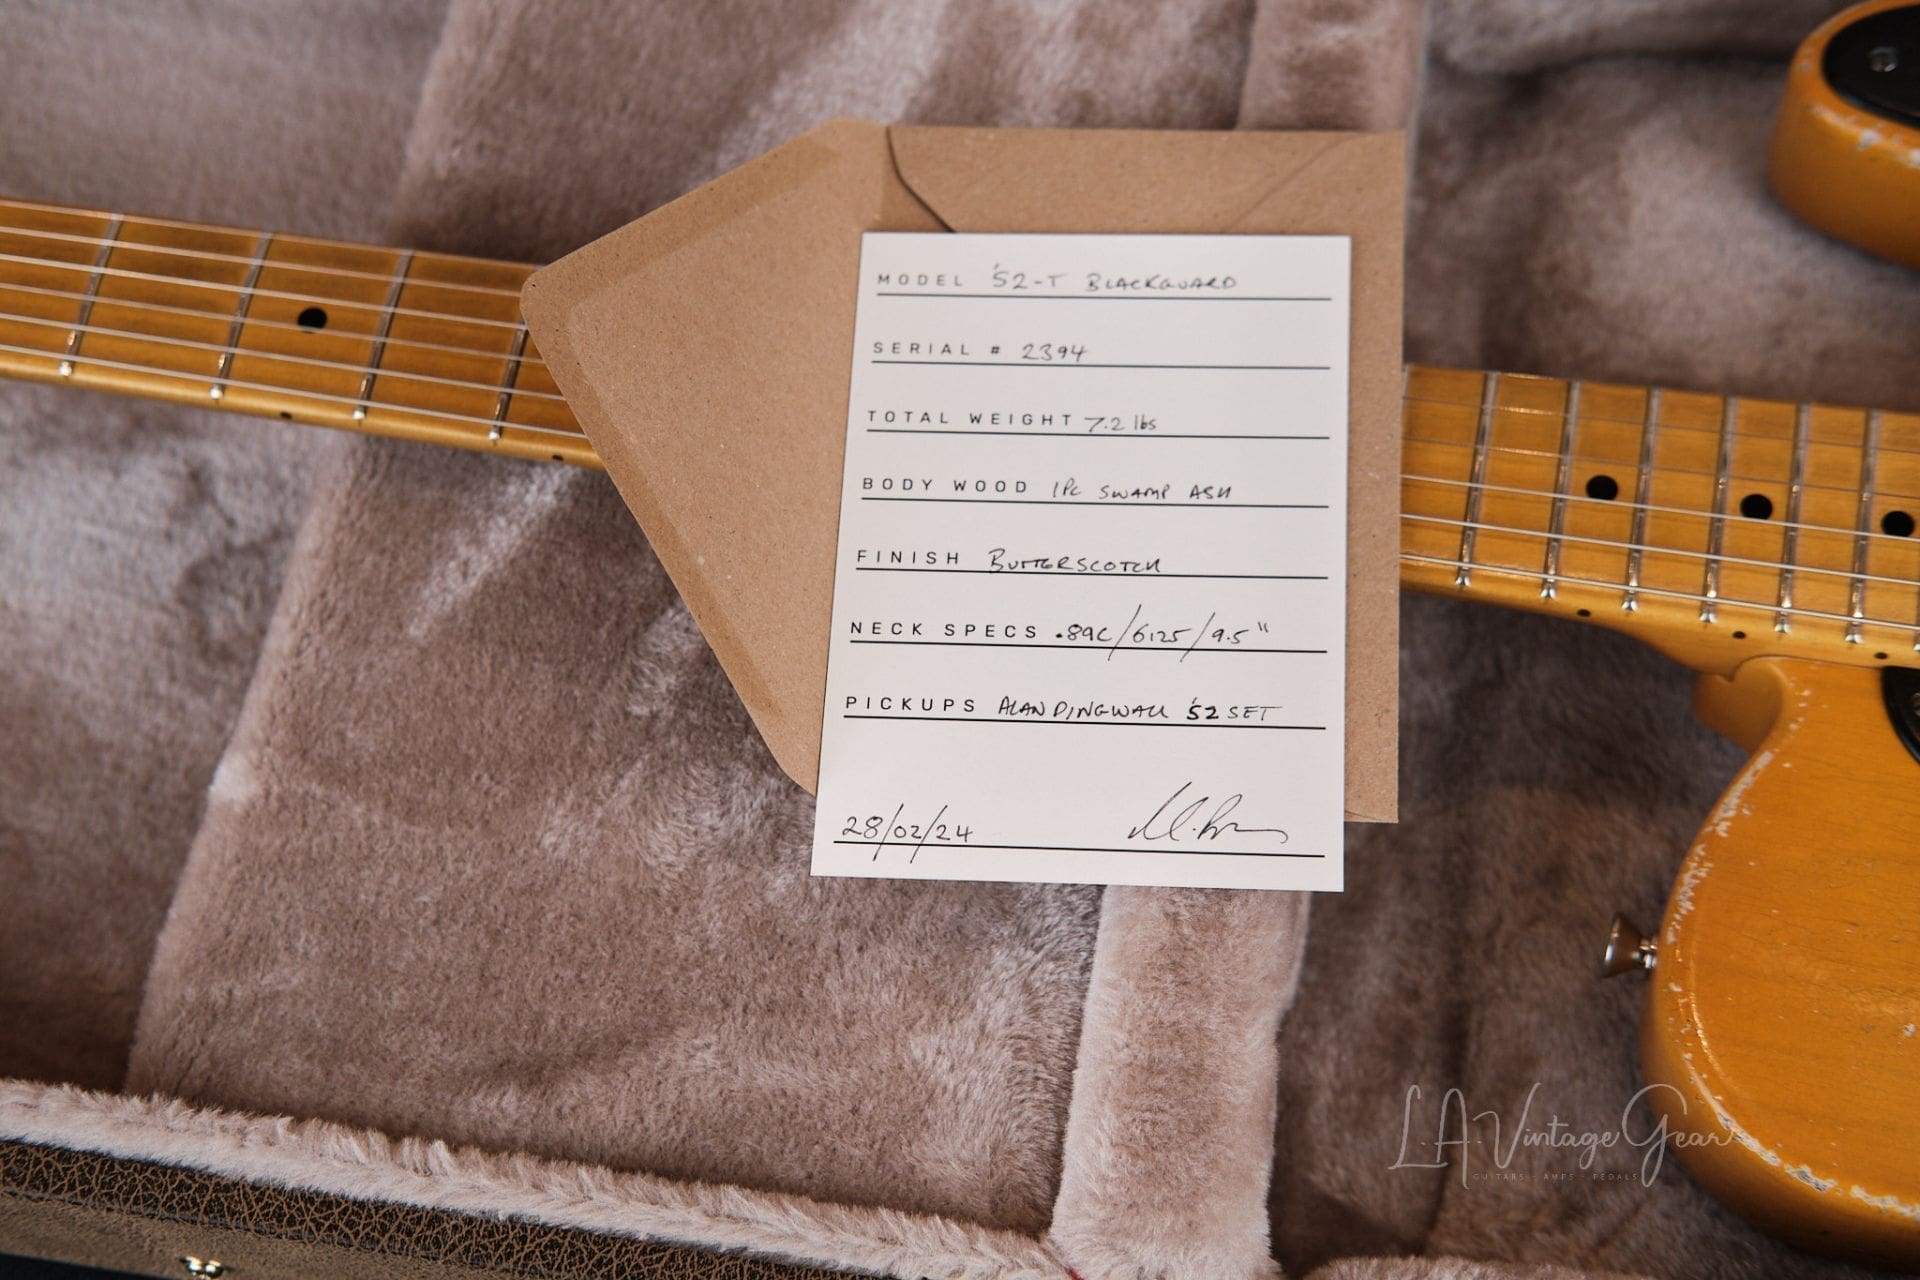 MODEL '52-T BLACKGUARD
SERIAL # 2394
TOTAL WEIGHT 7.2 lbs
BODY WOOD 1PC SWAMP ASH
FINISH BUTTERSCOTCH
NECK SPECS .89C/6125/9.5"
PICKUPS ALAN DINGWALL '52 SET
28/02/24
L.A. Vintage Gear
GUITARS - AMPS - PEDALS